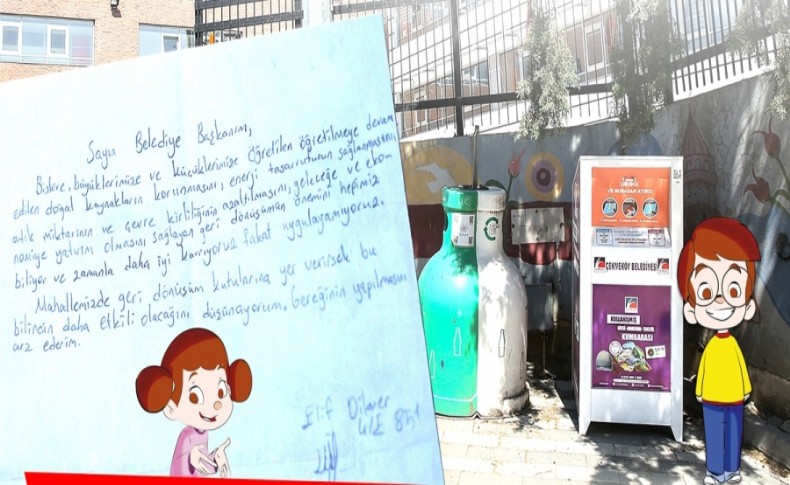 Sayın Belediye Başkanım,
Bizlere, büyüklerimize ve küçüklerimize öğretilen öğretilmeye devam
edilen doğal kaynakların korunmasını, enerji tasarrufunun sağlanmasını,
atık miktarının ve çevre kirliliğinin azaltılmasını, geleceğe ve ekon-
nomiye yatırım olmasını sağlayan geri dönüşümün önemini hepimiz
biliyor ve zamanla daha iyi kavrıyoruz fakat uygulayamıyoruz.
Mahallemizde geri dönüşüm kutularına yer verirsek bu
bilincin daha etkili olacağını düşünüyorum. Gereğinin yapılmasını
arz ederim.
Elif Dilaver
4/E 851
ÇEKMEKÖY BELEDİYESİ
KULLANILMIŞ
KUMBARASI